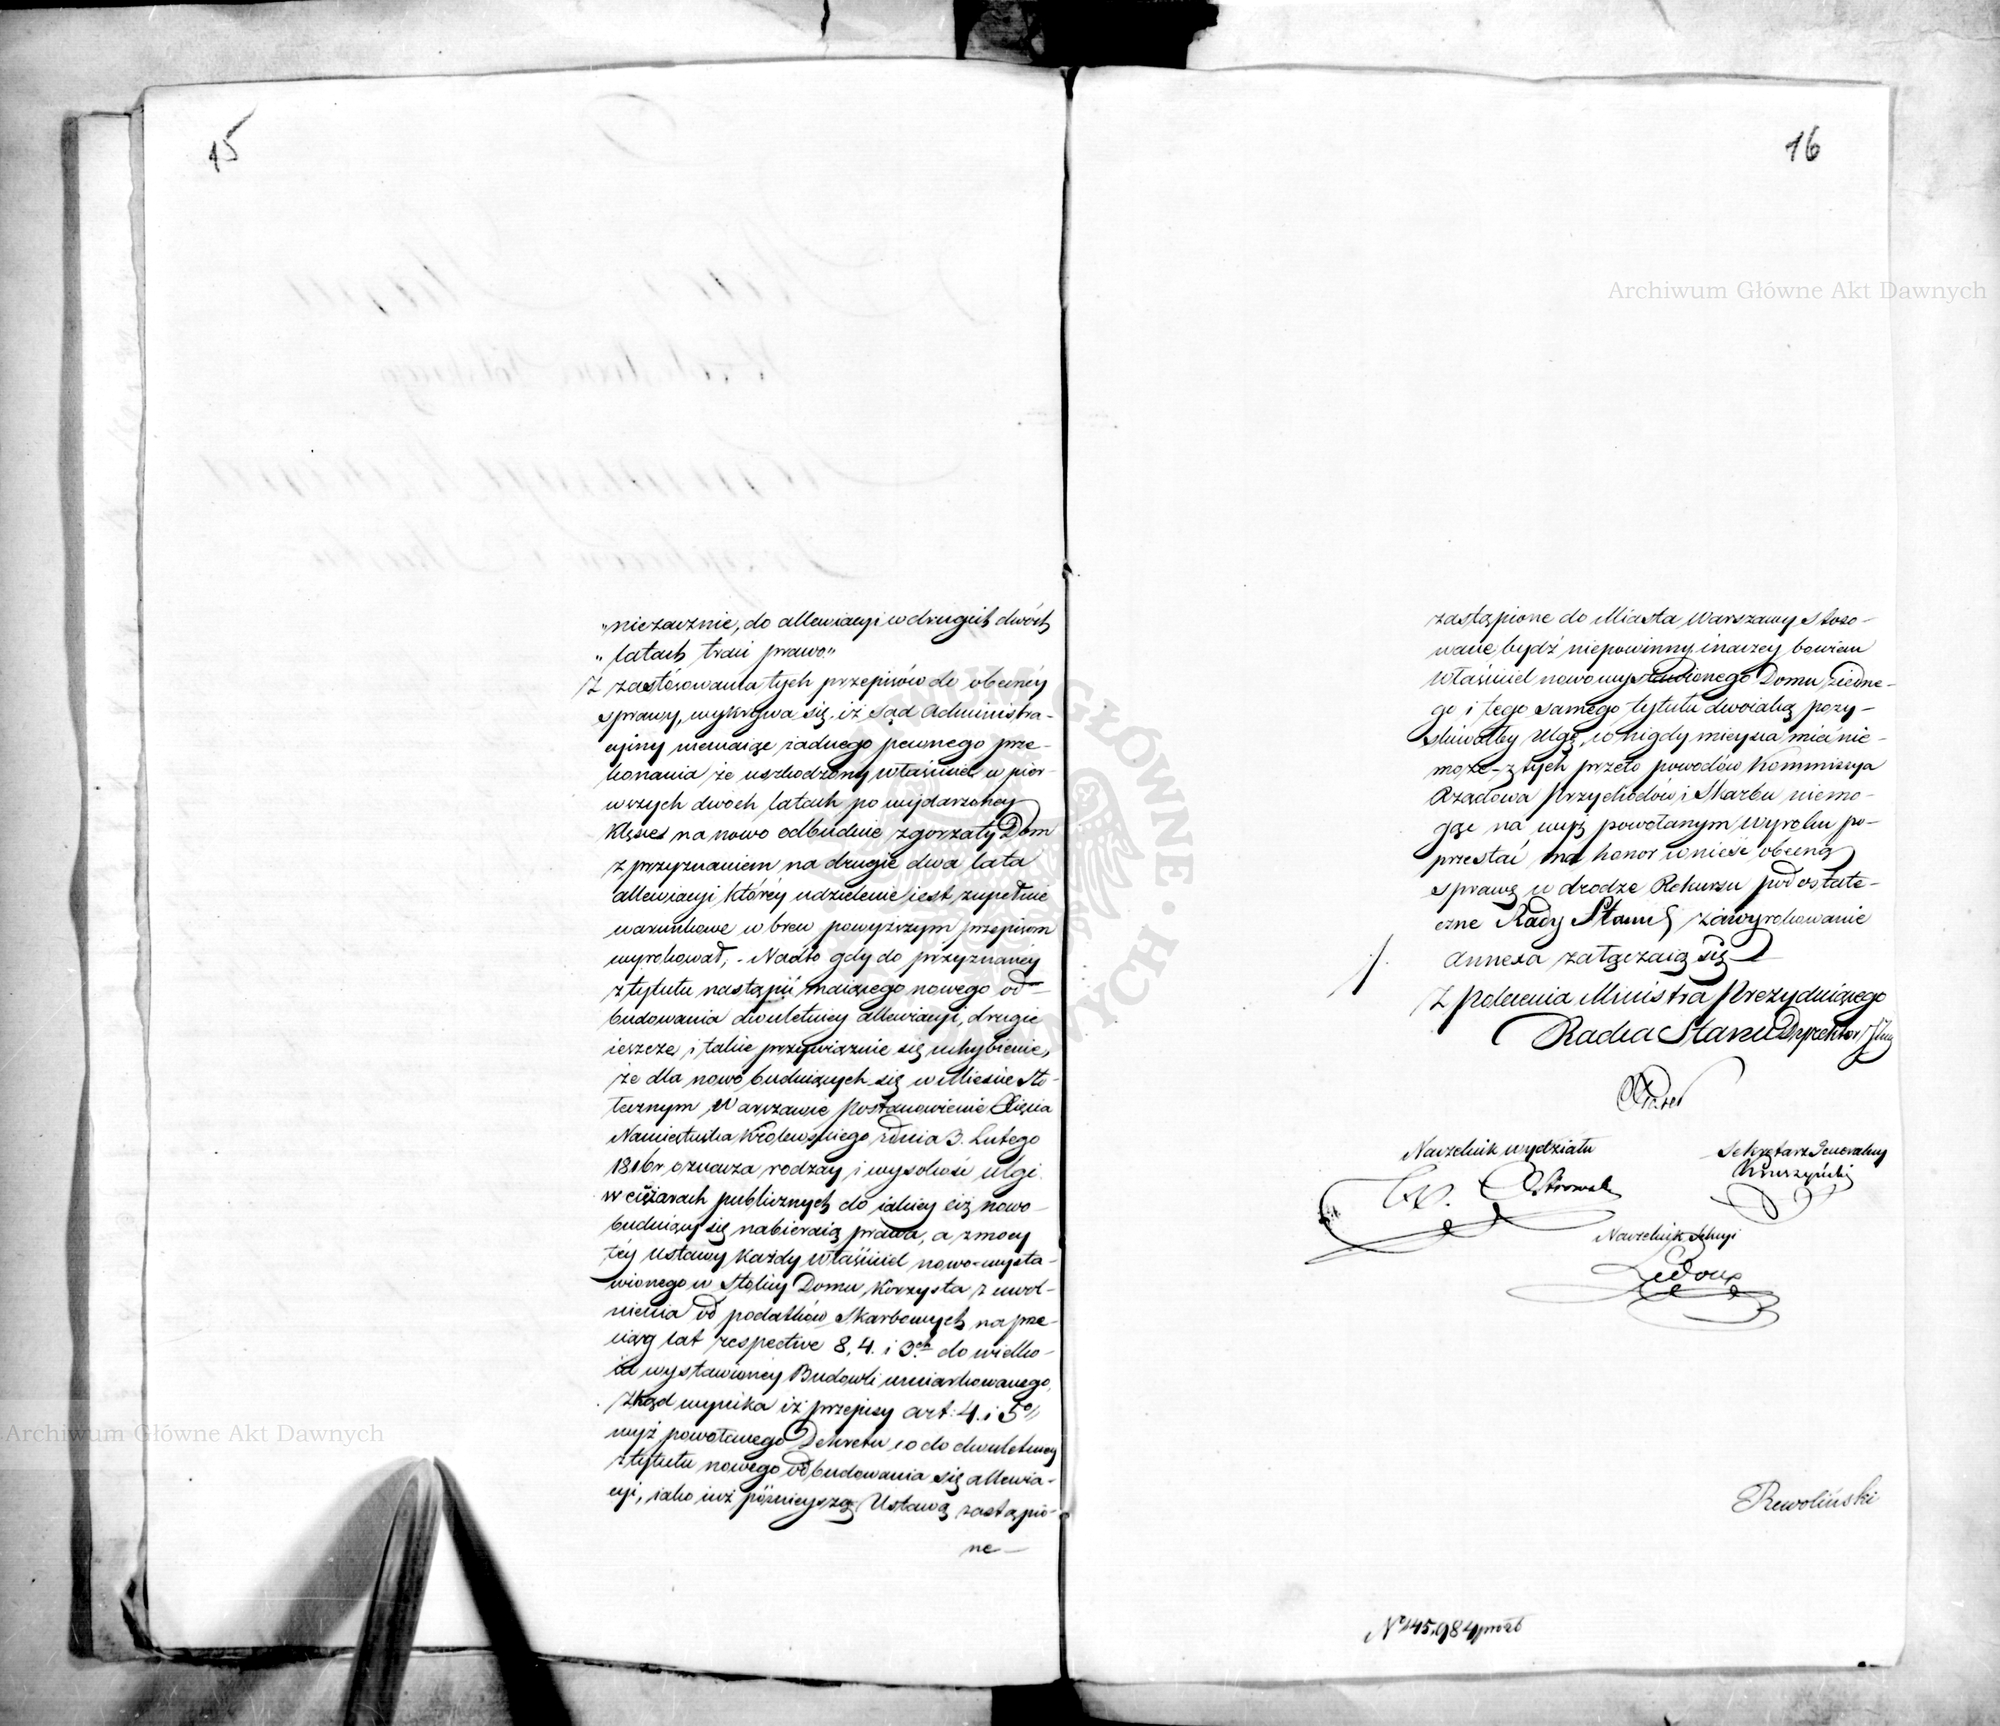 15
„niezacznie, do allewiacyi w drugich dwóch
„latach traci prawo."
Z zastosowania tych przepisów do obecnéy
sprawy, wykrywa się, iż Sąd Administra-
cyiny niemaiąc żadnego pewnego prze-
konania że uszkodzony właściciel w pier-
wszych dwóch latach po wydarzonéy
klęsce na nowo odbuduie zgorzały Dom
z przyznaniem na drugie dwa lata
allewiacyi, któréy udzielenie iest zupełnie
warunkowe wbrew powyższym przepisom
wyrokował, - Nadto gdy do przyznanéy
z tytułu nastąpić maiącego nowego od-
budowania dwuletniey allewiacyi, drugie
ieszcze i takie przywiązuie się uchybienie,
że dla nowo buduiących się w Mieście Sto-
łecznym Warszawie Postanowienie Xięcia
Namiestnika Królewskiego z dnia 3. Lutego
1816r. oznacza rodzay i wysokość ulgi
w ciężarach publicznych do iakiéy ciż nowo-
buduiący się nabieraią prawa, a z mocy
téy Ustawy każdy właściciel nowo-wysta-
wionego w Stolicy Domu korzysta z uwol-
nienia od podatków Skarbowych na prze-
ciąg lat respective 8, 4. i 3ch do wielko-
ści wystawionéy Budowli umiarkowanego,
Zkąd wynika iż przepisy art: 4. i 5o
wyż powołanego Dekretu co do dwuletniey
z tytułu nowego odbudowania się allewia-
cyi, iako iuż późnieyszą Ustawą zastąpio-
ne-
16
Archiwum Główne Akt Dawnych
zastąpione do Miasta Warszawy stoso-
wane bydź niepowinny, inaczey bowiem
Właściciel nowo wystawionego Domu, z iedne-
go i tego samego tytułu dwoiaką pozy-
skiwałby ulgę, co nigdy mieysca mieć nie-
może - z tych przeto powodów Kommissya
Rządowa Przychodów i Skarbu niemo-
gąc na wyż powołanym wyroku po-
przestać ma honor wnieść obecną
sprawę w drodze Rekursu pod ostate-
czne Rady Stanu zawyrokowanie
annexa załączaią się
Z polecenia Ministra Prezyduiącego
Radca Stanu Dyrektor
Naczelnik wydziału
Sekretarz Generalny
Kruszyński
Naczelnik Sekcyi
Ledoux
Rewoliński
Archiwum Główne Akt Dawnych